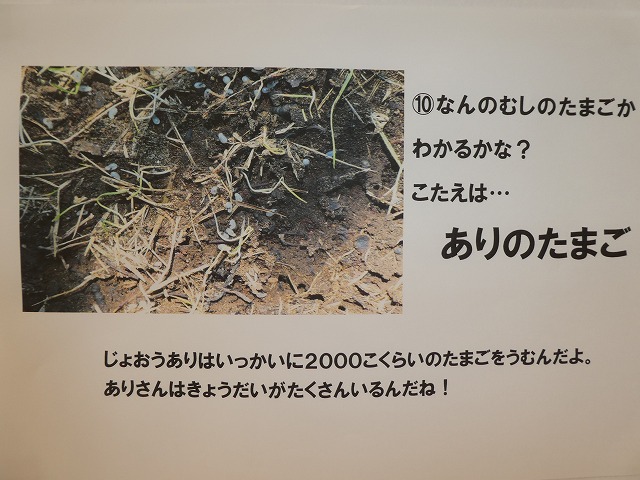 ⑩なんのむしのたまごか
わかるかな？
こたえは…
ありのたまご
じょおうありはいっかいに2000こくらいのたまごをうむんだよ。
ありさんはきょうだいがたくさんいるんだね！